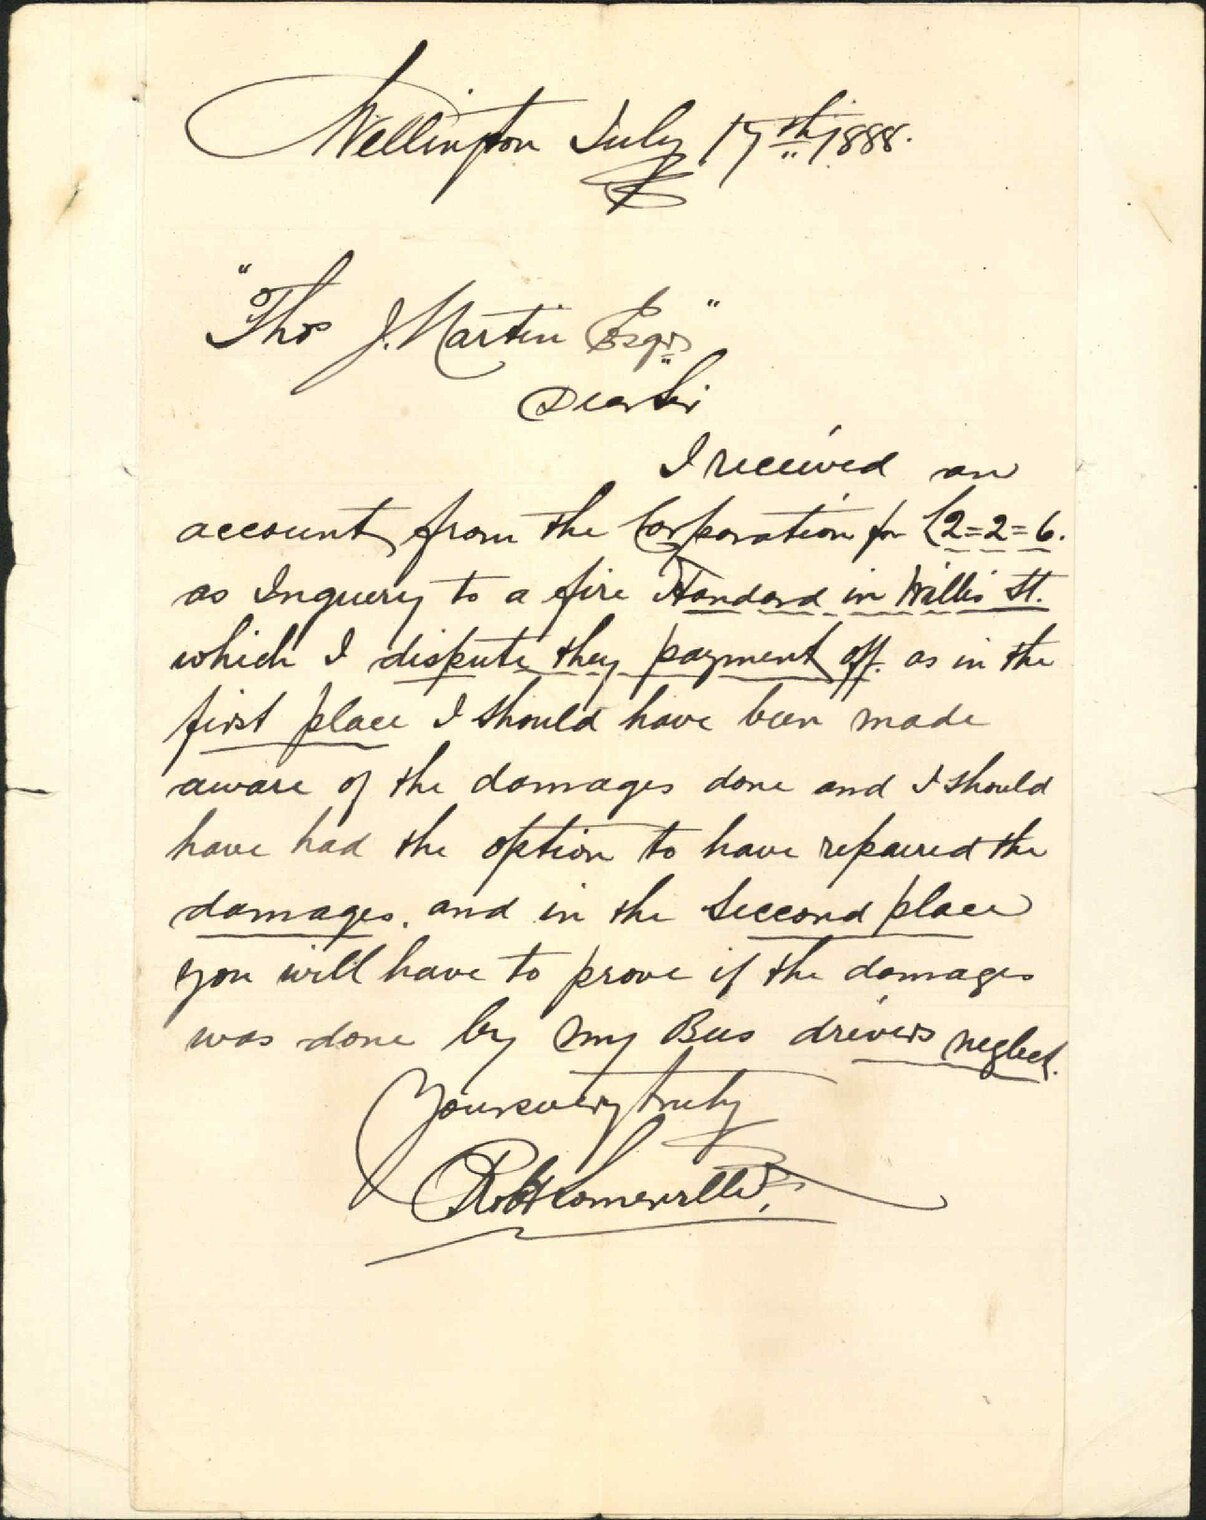 Wellington July 17th 1888.
"Thos J. Martin Esqr"
Dear Sir
I received an
account from the Corporation for £2=2=6.
as Inquery to a fire Standard in Willis St.
which I dispute they payment off. as in the
first place I should have been made
aware of the damages done and I should
have had the option to have repaired the
damages. and in the Seccond place
you will have to prove if the damages
was done by my Bus drivers neglect.
Yours very truly
Robt Somerville.